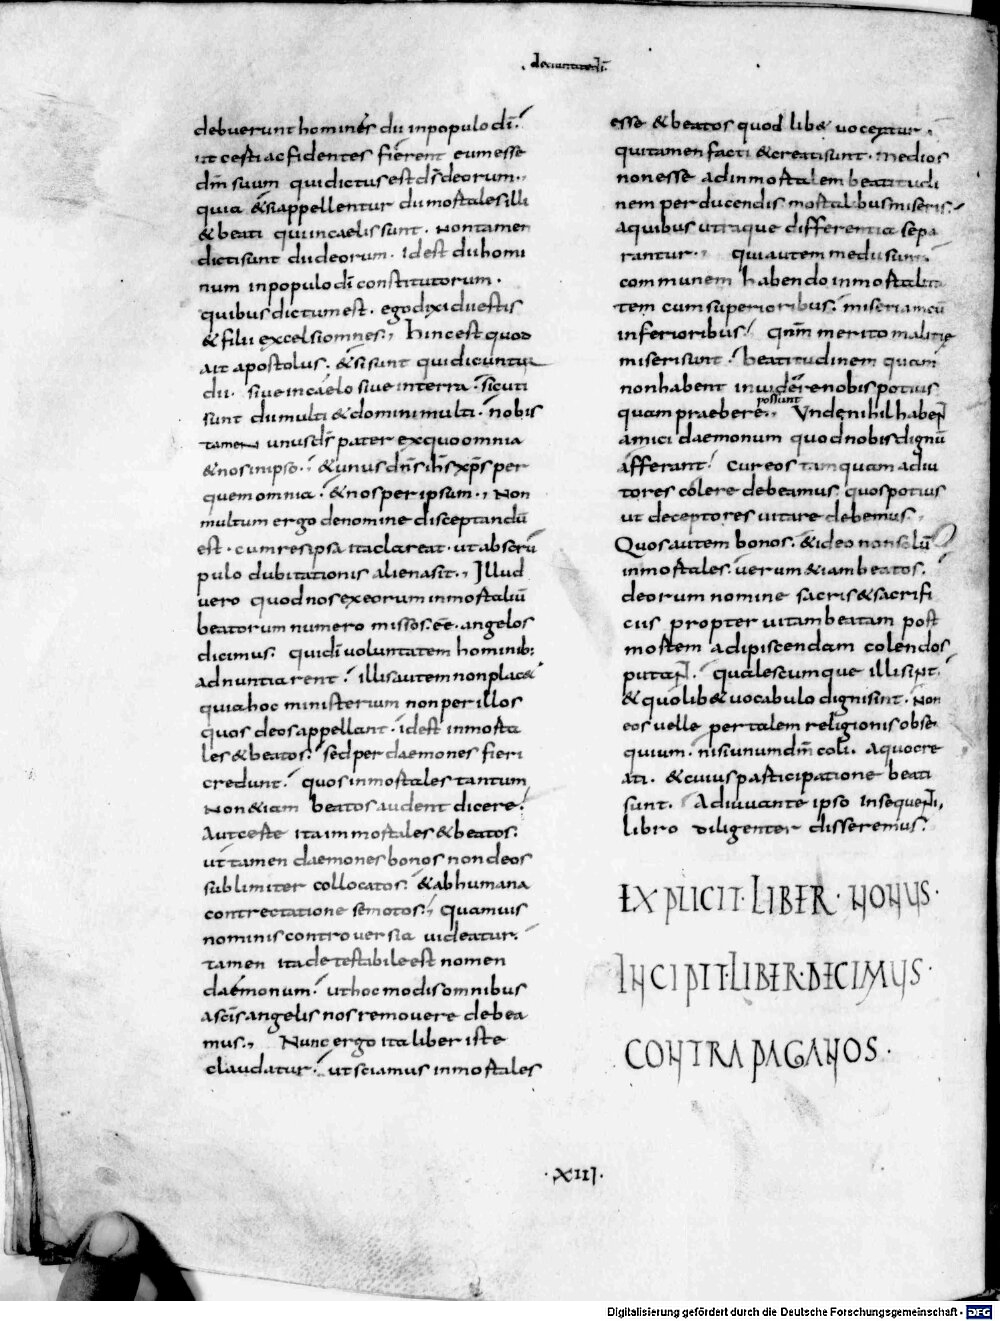 de ciuitate dī
debuerunt homines dii in populo dī.
ut certi ac fidentes fierent eum esse
dm̄ suum qui dictus est ds̄ deorum.,
quia & si appellentur dii mortales illi
& beati qui in caelis sunt. Non tamen
dicti sunt dii deorum. Id est dii homi
num in populo dī constitutorum.
quibus dictum est. ego dixi dii estis
& filii excelsi omnes., Hinc est quod
ait apostolus. & si sunt qui dicuntur
dii. siue in caelo siue in terra. sicuti
sunt dii multi & domini multi. nobis
tamen unus ds̄ pater ex quo omnia
& nos in ipso. & unus dn̄s ih̄s xp̄s per
quem omnia. & nos per ipsum., Non
multum ergo de nomine disceptandū
est. cum res ipsa ita clareat. ut ab scrū
pulo dubitationis aliena sit., Illud
uero quod nos ex eorum inmortaliū
beatorum numero missos. eē. angelos
dicimus. qui dī uoluntatem hominib;
adnuntiarent. illis autem non plac&
quia hoc ministerium non per illos
quos deos appellant. id est inmorta
les & beatos. sed per daemones fieri
credunt. quos inmortales tantum
Non &iam beatos audent dicere.
Aut certe ita immortales & beatos.
ut tamen daemones bonos non deos
sublimiter collocatos. & ab humana
contrectatione semotos., Quamuis
nominis controuersia uideatur.
tamen ita detestabile est nomen
daemonum. ut hoc modis omnibus
a scīs angelis nos remouere debea
mus., Nunc ergo ita liber iste
claudatur. ut sciamus inmortales
esse & beatos quod lib& uocentur.
qui tamen facti & creati sunt. medios
non esse ad inmortalem beatitudi
nem perducendis mortalibus miseris.
a quibus utraque differentia sepa
rantur., qui autem medii sunt.
communem habendo inmortalita
tem cum superioribus. miseriam cū
inferioribus. qn̄m merito malitię
miseri sunt. beatitudinem quam
non habent inuidere nobis potius
quam praebere possunt., Unde nihil habent
amici daemonum quod nobis dignū
afferant. cur eos tamquam adiu
tores colere debeamus. quos potius
ut deceptores uitare debemus.,
Quos autem bonos. & ideo non solū
inmortales. uerum &iam beatos.
deorum nomine sacris & sacrifi
ciis propter uitam beatam post
mortem adipiscendam colendos
putant. qualescumque illi sint.
& quolib& uocabulo digni sint. Non
eos uelle per talem religionis obse
quium. nisi unum dm̄ coli. a quo cre
ati. & cuius participatione beati
sunt. Adiuuante ipso in sequenti,
libro diligenter disseremus.
EXPLICIT·LIBER·NONUS·
INCIPIT·LIBER·DECIMUS·
CONTRA PAGANOS·
·XIII·
Digitalisierung gefördert durch die Deutsche Forschungsgemeinschaft - DFG